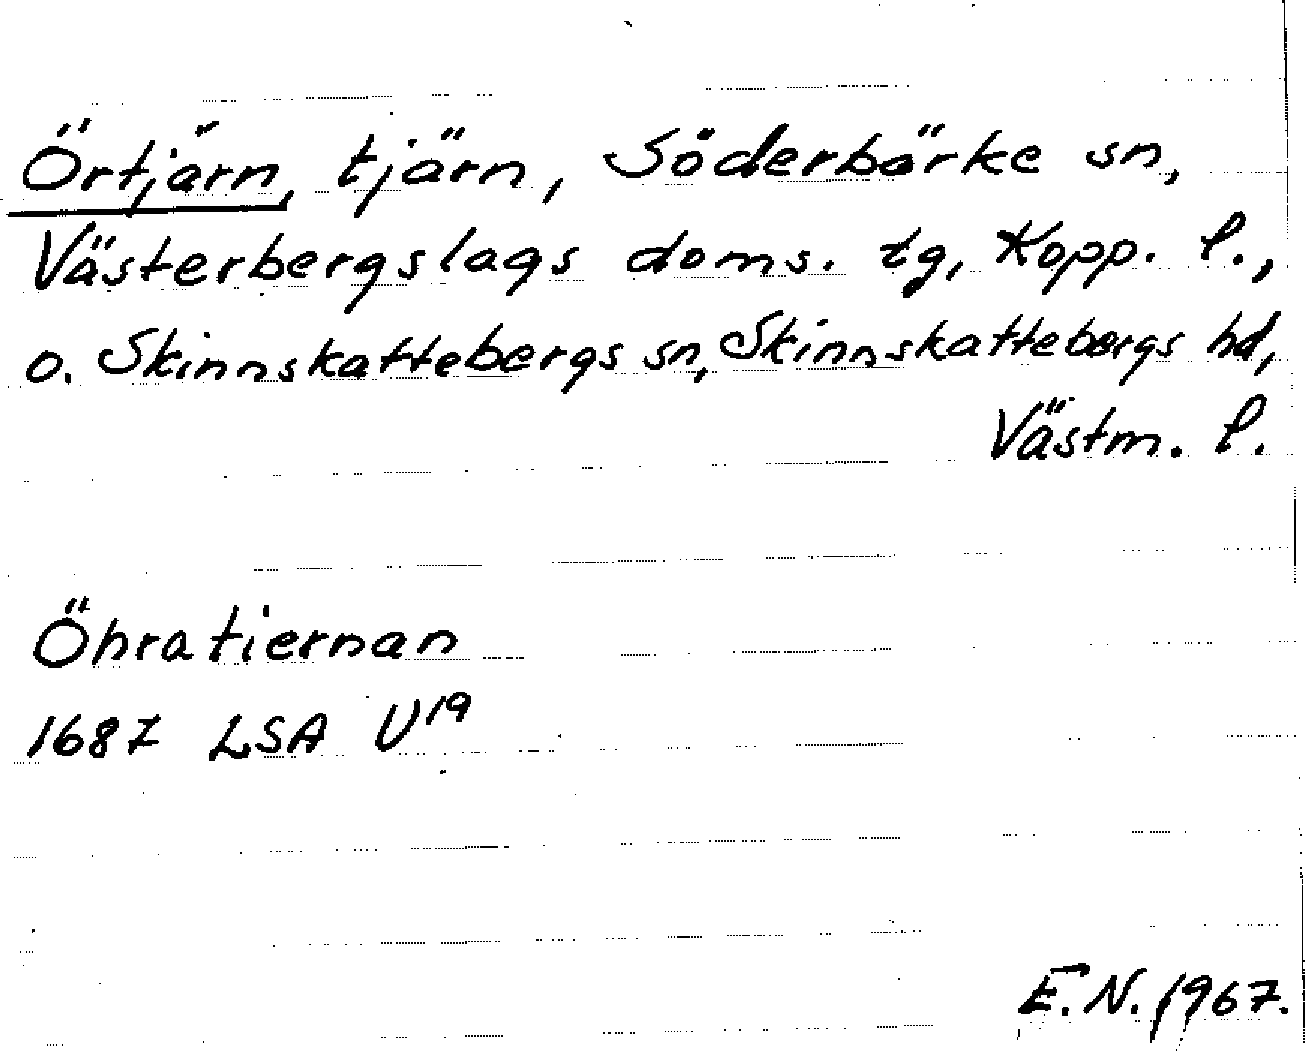 Örtjärn, tjärn, Söderbärke sn,
Västerbergslags doms. tg, Kopp. l.,
o. Skinnskattebergs sn, Skinnskattebergs hd,
Västm. l.
Öhratiernan
1687 LSA U19
E.N. 1967.